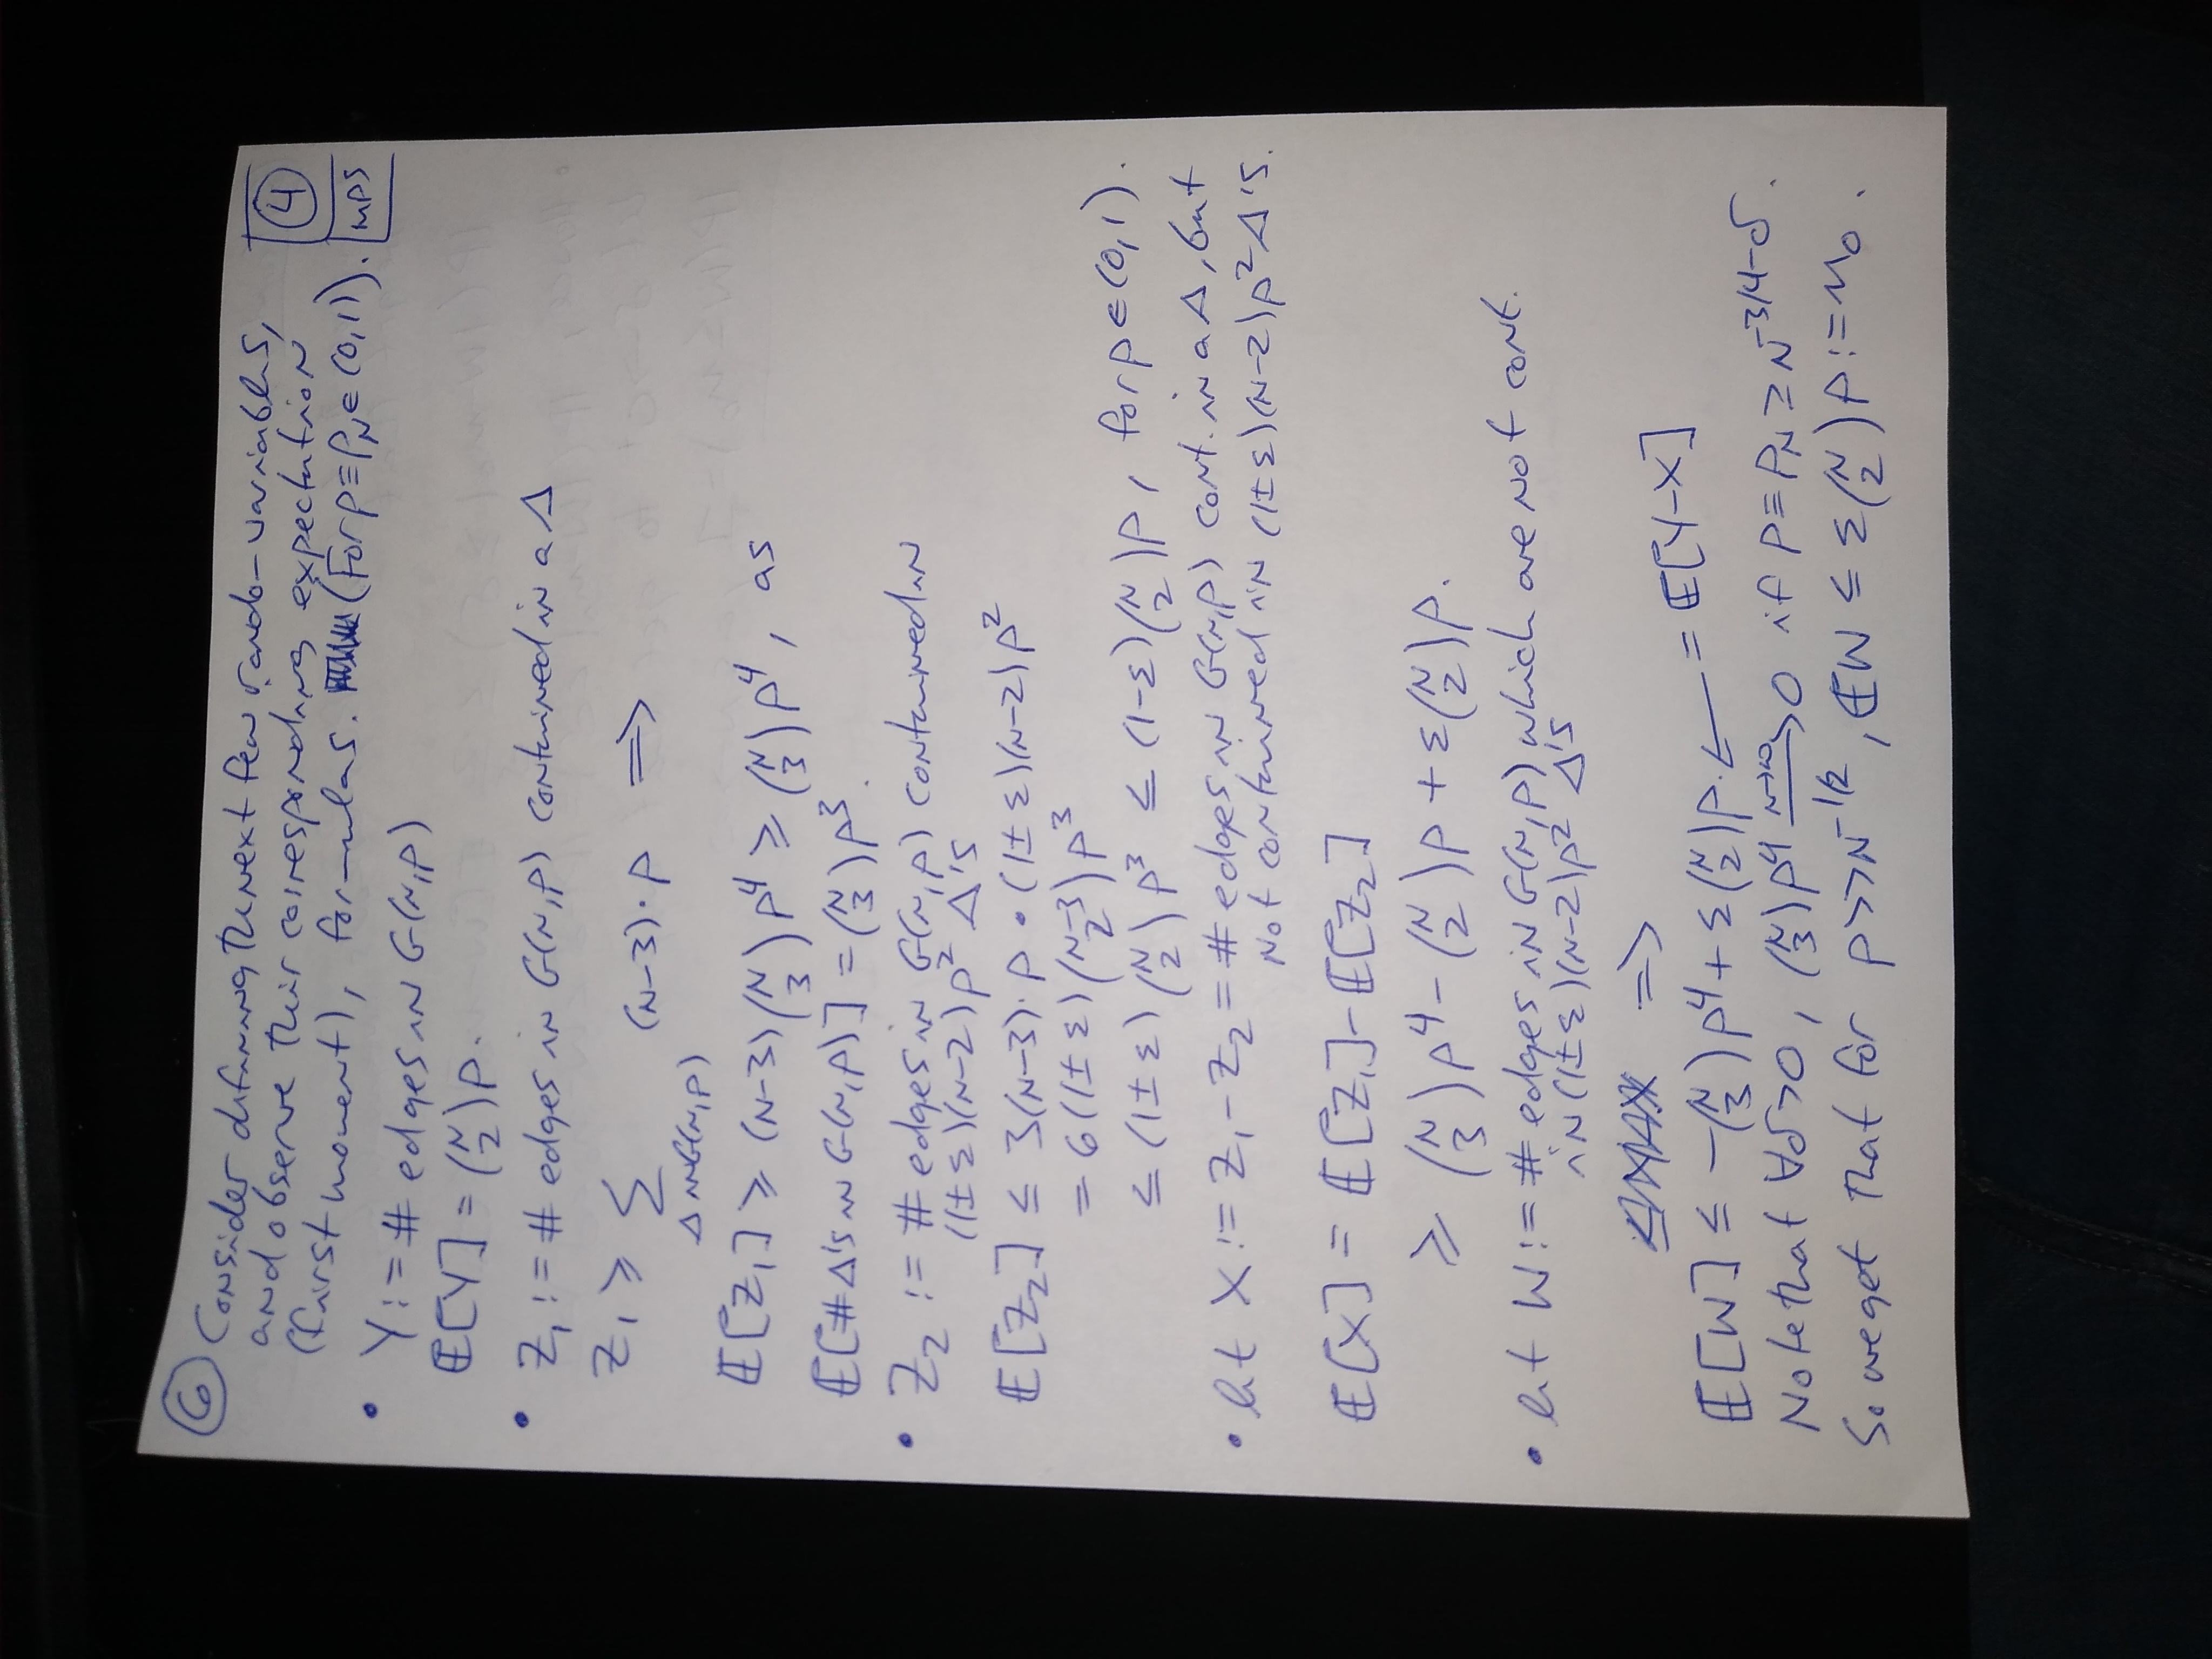 ⑥ Consider defining the next few rando-variables, ④
and observe their corresponding expectation MPS
(first moment), for-mulas. (For p≡p_N ∈ (0,1)).
• Y := # edges in G(n,p)
𝔼[Y] = (N choose 2)p.
• Z₁ := # edges in G(n,p) contained in a Δ
Z₁ ≥ Σ_{Δ in G(n,p)} (N-3)·p ⟹
𝔼[Z₁] ≥ (N-3)(N choose 3)p⁴ ≥ (N choose 3)p⁴, as
𝔼[#Δ's in G(n,p)] = (N choose 3)p³.
• Z₂ := # edges in G(n,p) contained in
(1±ε)(N-2)p² Δ's
𝔼[Z₂] ≤ 3(N-3)·p·(1±ε)(N-2)p²
= 6(1±ε)(N-3 choose 2)p³
≤ (1±ε)(N choose 2)p³ ≤ (1-ε)(N choose 2)p, for p ∈ (0,1).
• let X := Z₁ - Z₂ = # edges in G(n,p) cont. in a Δ, but
not contained in (1±ε)(N-2)p² Δ's.
𝔼[X] = 𝔼[Z₁] - 𝔼[Z₂]
≥ (N choose 3)p⁴ - (N choose 2)p + ε(N choose 2)p.
• let W := # edges in G(n,p) which are not cont.
in (1±ε)(N-2)p² Δ's
⟹
𝔼[W] ≤ -(N choose 3)p⁴ + ε(N choose 2)p. ← = 𝔼[Y-X]
Note that ∀δ>0, (N choose 3)p⁴ →^{N→∞} 0 if p ≡ p_N ≥ N^{-3/4-δ}.
So we get that for p >> N^{-1/2}, 𝔼W ≤ ε(N choose 2)p := μ₀.